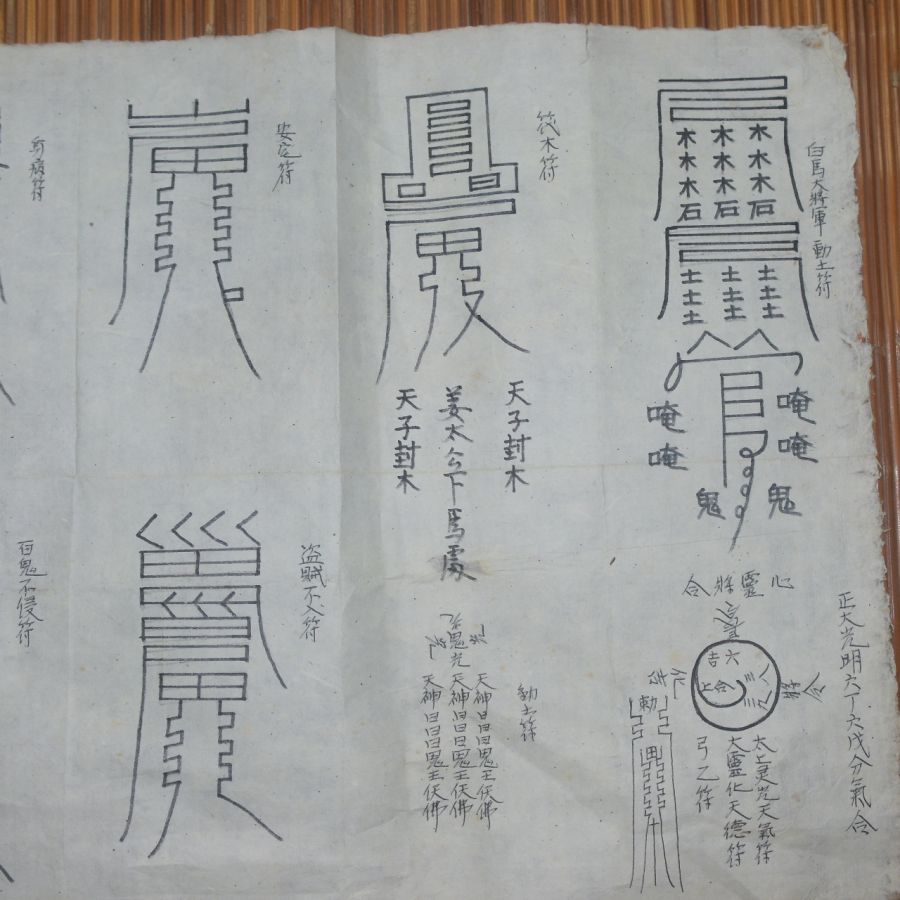 白馬大將軍動土符
木木木
木木木
木木木
石石石
土土土
土土土
土土土
唵唵
唵唵
鬼鬼
伐木符
天子封木
姜太公下馬處
天子封木
安宅符
病符
正大光明六丁六戊分氣合
心靈將合
六
吉
上合
勅
太上灵光天氣符
大靈化天德符
弓乙符
動土符
天神日日日鬼王仸佛
天神日日日鬼王仸佛
天神日日日鬼王仸佛
盜賊不入符
百鬼不侵符